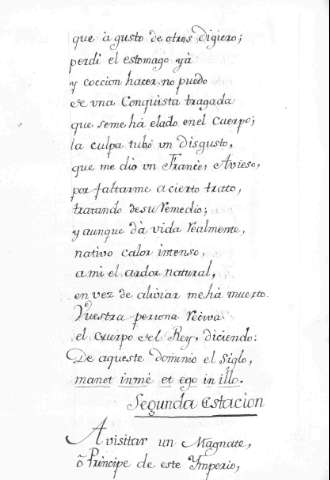 que à gusto de otros digiero;
perdi el estomago yà
y coccion hacer no puedo
de vna Conquista tragada
que seme hà elado enel Cuerpo;
la culpa tubó vn disgusto,
que me dio vn Francès, Avieso,
por faltarme à cierto trato,
tratando desu Remedio;
y aunque dà vida Realmente,
nativo calor intenso,
a mi el ardor natural,
en vez de aliviar me hà muerto.
Vuestra persona Reciva
el cuerpo del Rey, diciendo:
De aqueste dominio el Siglo,
manet inme et ego in illo.
Segunda Estacion
A visitar un Magnate,
ò Principe de este Ymperio,